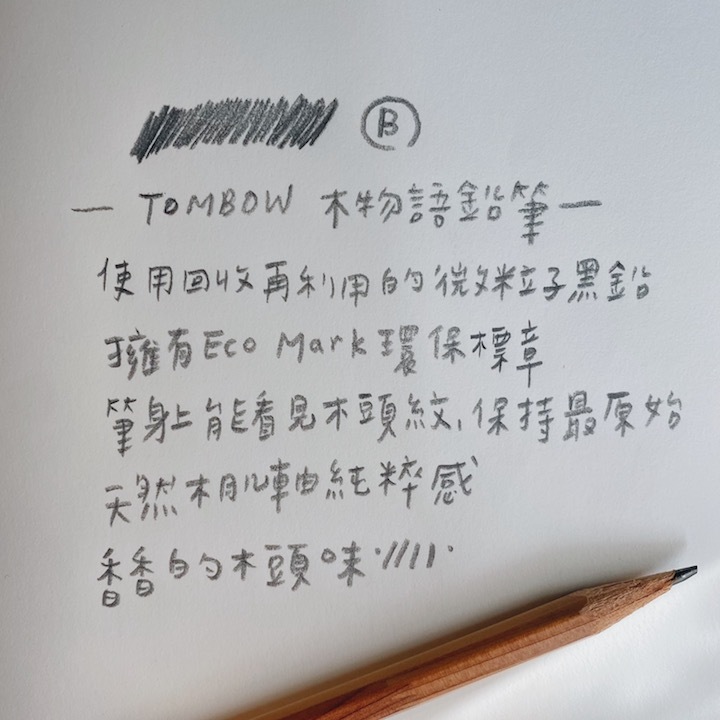 B
— TOMBOW 木物語鉛筆 —
使用回收再利用的微粒子黑鉛
擁有Eco Mark環保標章
筆身上能看見木頭紋,保持最原始
天然木肌軸純粹感
香香的木頭味·////·